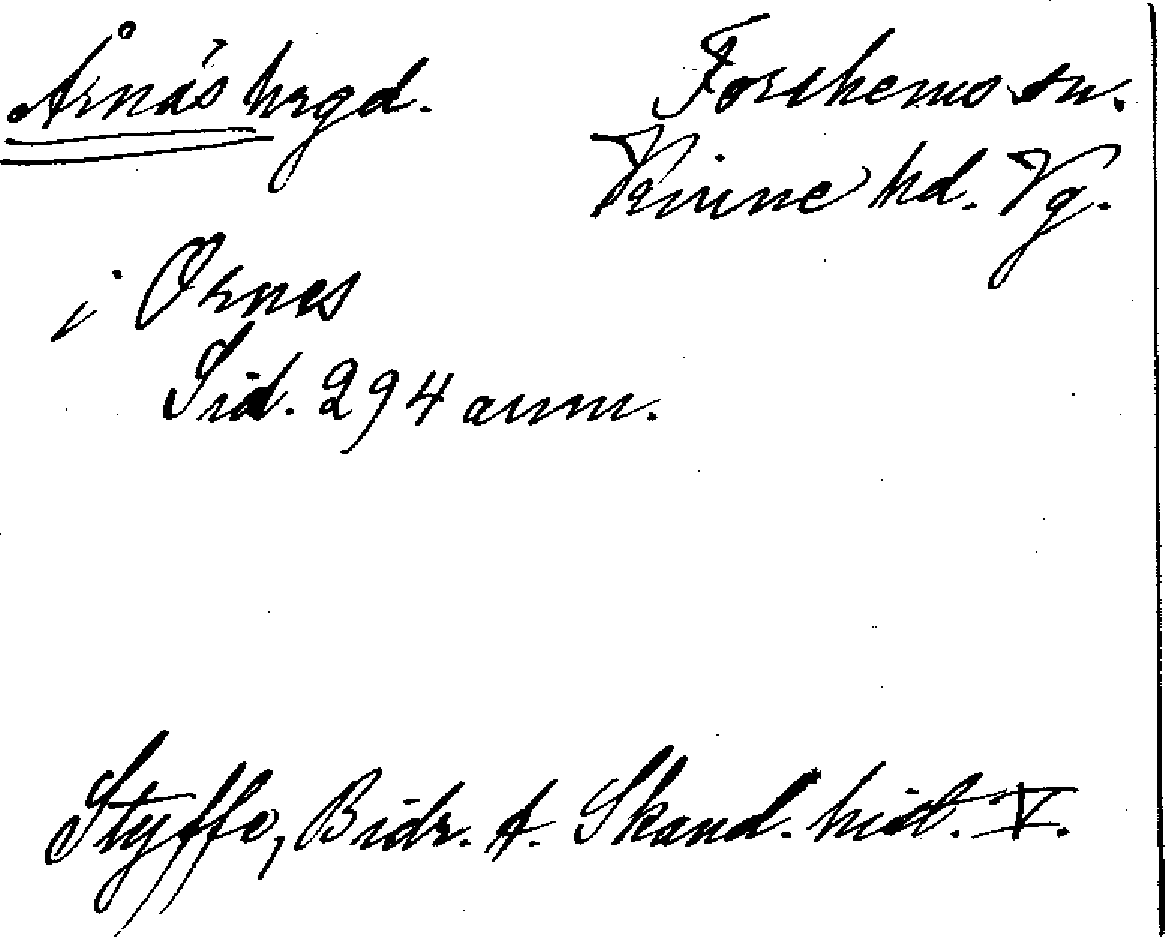 Årnäs hrgd.
Forshems sn.
Kinne hd. Vg.
i Ornes
Sid. 294 anm.
Styffe, Bidr. t. Skand. hist. V.